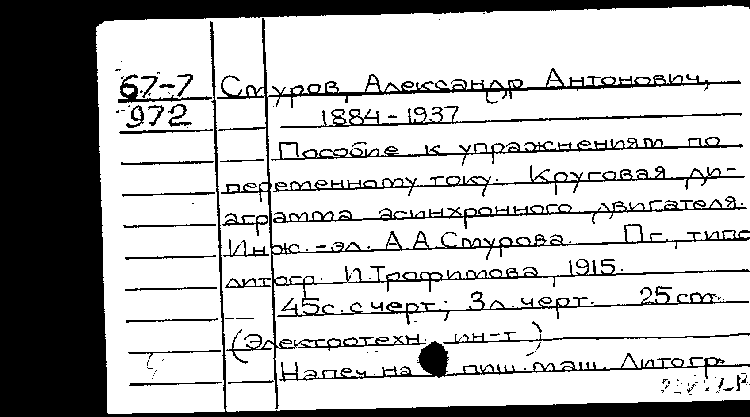 67-7 Смуров, Александр Антонович,
972 1884-1937
Пособие к упражнениям по
переменному току. Круговая ди-
аграмма асинхронного двигателя.
Инж.-эл. А.А.Смурова. Пг., типо
литогр. И.Трофимова, 1915.
45с. с черт.; 3л. черт. 25cm.
(Электротехн. ин-т)
Напеч на пиш. маш. Литогр.